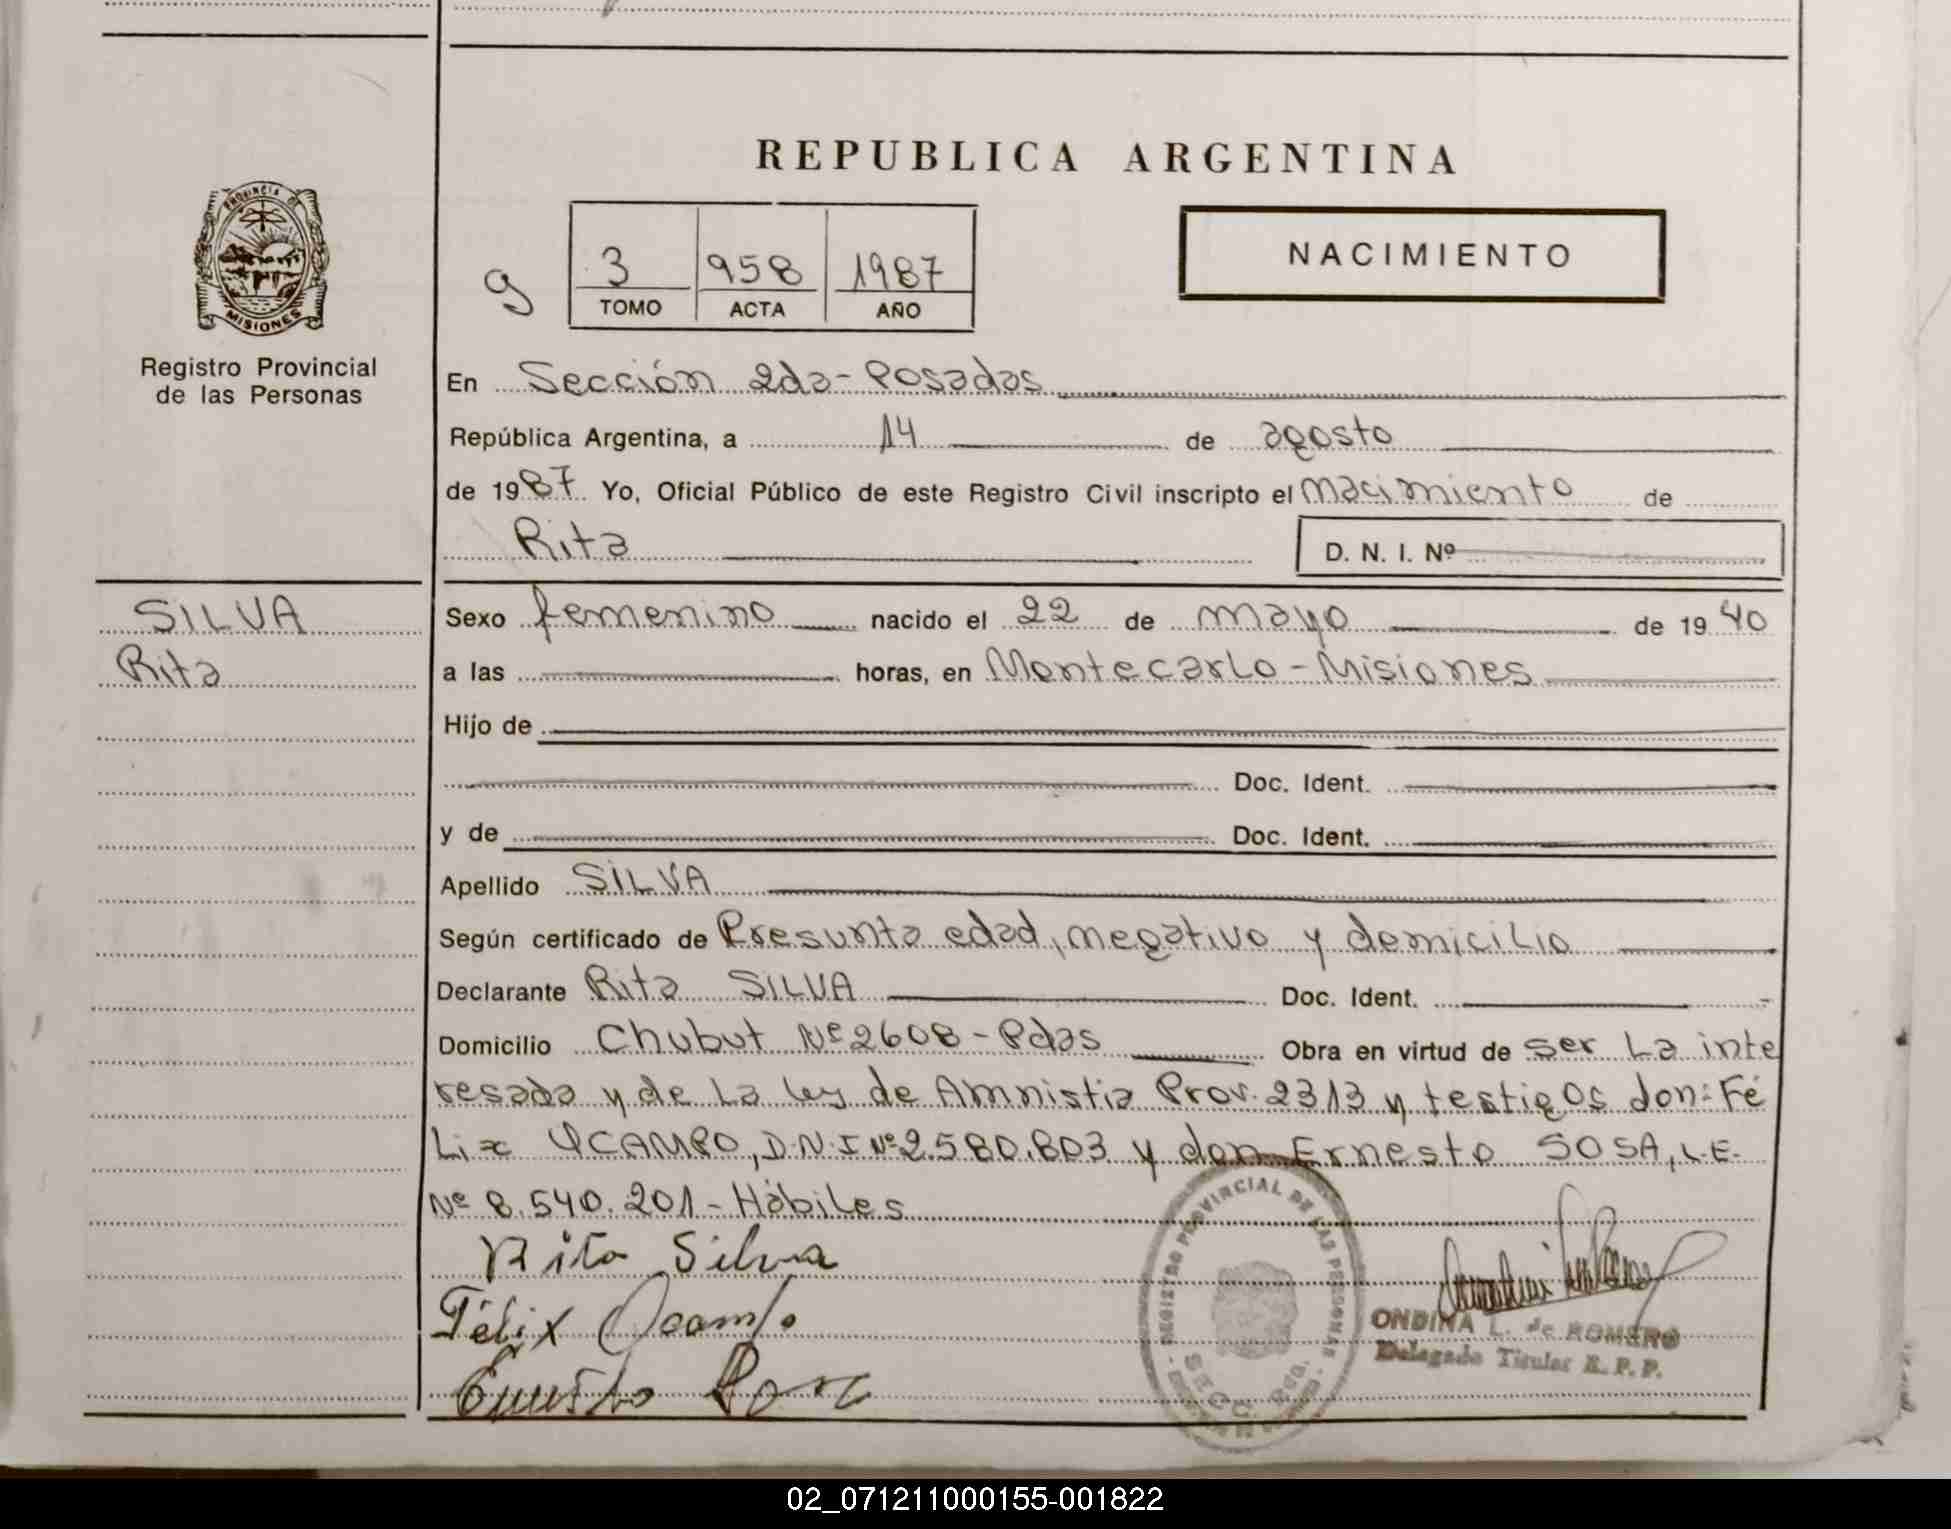 REPUBLICA ARGENTINA
PROVINCIA DE
MISIONES
Registro Provincial
de las Personas
9
3 958 1987
TOMO ACTA AÑO
NACIMIENTO
En Sección 2da - Posadas
República Argentina, a 14 de agosto
de 1987 Yo, Oficial Público de este Registro Civil inscripto el nacimiento de
Rita
D. N. I. Nº
SILVA
Rita
Sexo femenino nacido el 22 de mayo de 1940
a las horas, en Montecarlo - Misiones
Hijo de
Doc. Ident.
y de Doc. Ident.
Apellido SILVA
Según certificado de Presunta edad, negativo y domicilio
Declarante Rita SILVA Doc. Ident.
Domicilio Chubut Nº 2608 - Pdas Obra en virtud de ser La inte
resada y de La Ley de Amnistia Prov. 2313 y testigos don: Fé
Lix OCAMPO, D.N.I Nº 2.580.803 y don Ernesto SOSA, L.E.
Nº 8.540.201 - Hábiles
Rita Silva
Félix Ocampo
Ernesto Sosa
REGISTRO PROVINCIAL DE LAS PERSONAS
SECC. 2da.
ONDINA L. de ROMERO
Delegado Titular R. P. P.
02_071211000155-001822